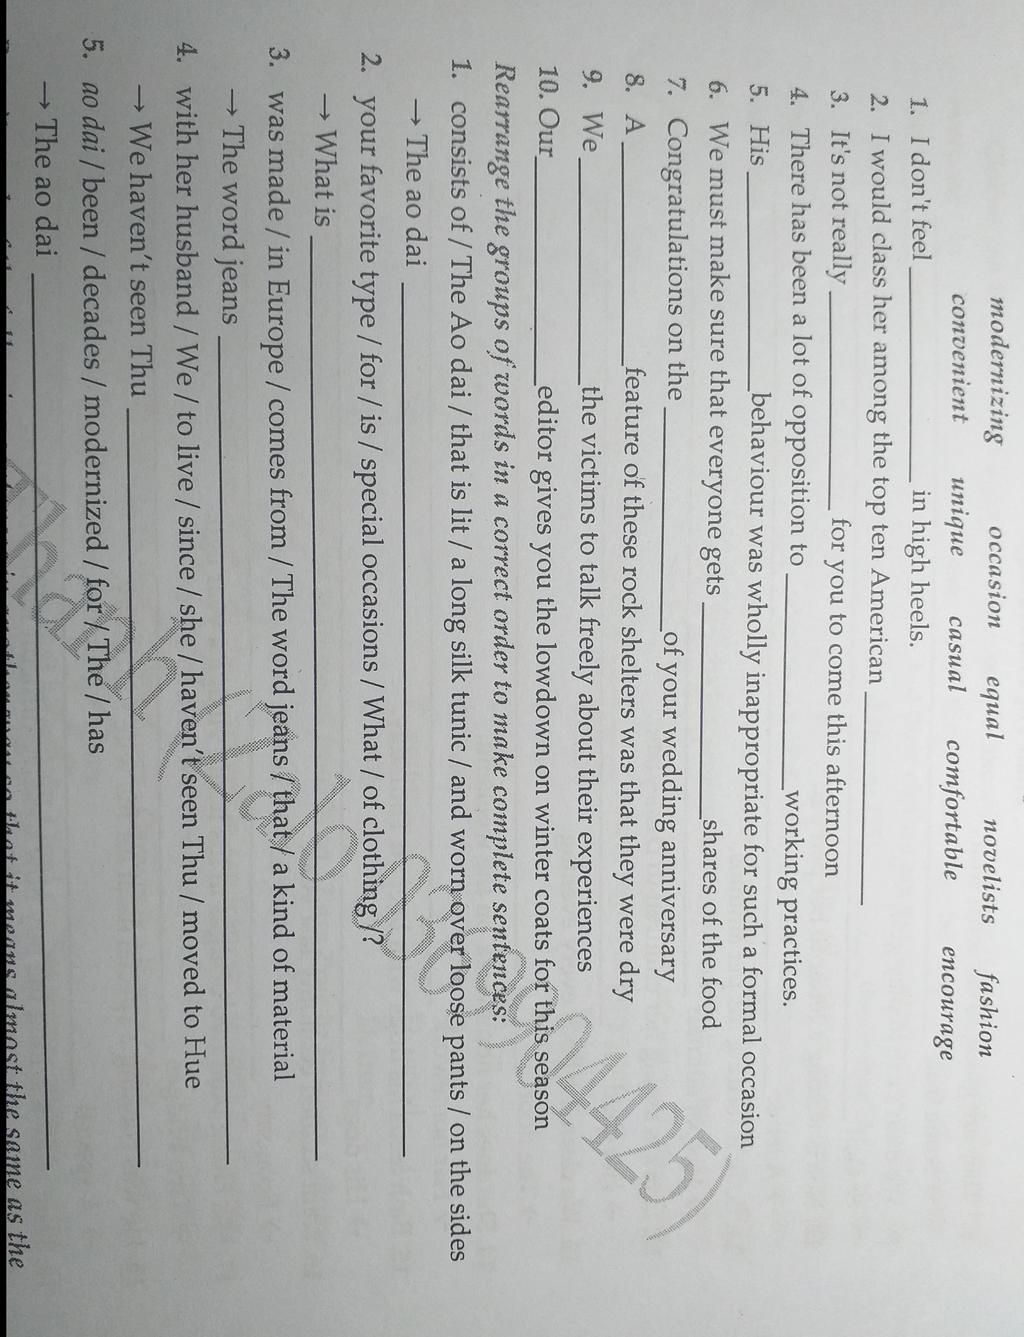 modernizing occasion equal novelists fashion
convenient unique casual comfortable encourage
1. I don't feel ____________ in high heels.
2. I would class her among the top ten American ____________
3. It's not really ____________ for you to come this afternoon
4. There has been a lot of opposition to ____________ working practices.
5. His ____________ behaviour was wholly inappropriate for such a formal occasion
6. We must make sure that everyone gets ____________ shares of the food
7. Congratulations on the ____________ of your wedding anniversary
8. A ____________ feature of these rock shelters was that they were dry
9. We ____________ the victims to talk freely about their experiences
10. Our ____________ editor gives you the lowdown on winter coats for this season
Rearrange the groups of words in a correct order to make complete sentences:
1. consists of / The Ao dai / that is lit / a long silk tunic / and worn over loose pants / on the sides
→ The ao dai ____________
2. your favorite type / for / is / special occasions / What / of clothing /?
→ What is ____________
3. was made / in Europe / comes from / The word jeans / that / a kind of material
→ The word jeans ____________
4. with her husband / We / to live / since / she / haven't seen Thu / moved to Hue
→ We haven't seen Thu ____________
5. ao dai / been / decades / modernized / for / The / has
→ The ao dai ____________
so that it means almost the same as the